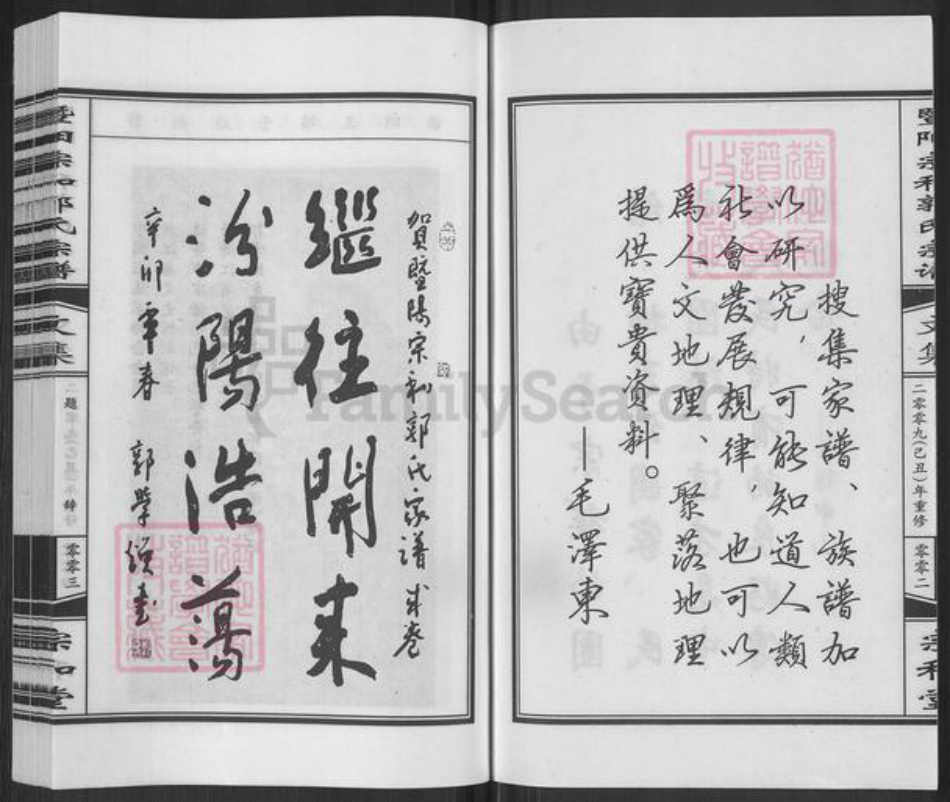 暨陽宗和郭氏宗譜
文集
二零零九(己丑)年重修
零零二
宗和堂
搜集家譜、族譜加
以研究,可能知道人類
社會發展規律,也可以
爲人文地理、聚落地理
提供寶貴資料。
—毛澤東
賀暨陽宗和郭氏家譜成卷
繼往開來
汾陽浩蕩
辛卯年春
郭學
書
暨陽宗和郭氏宗譜
文集
題
辞
零零三
宗和堂
FamilySearch